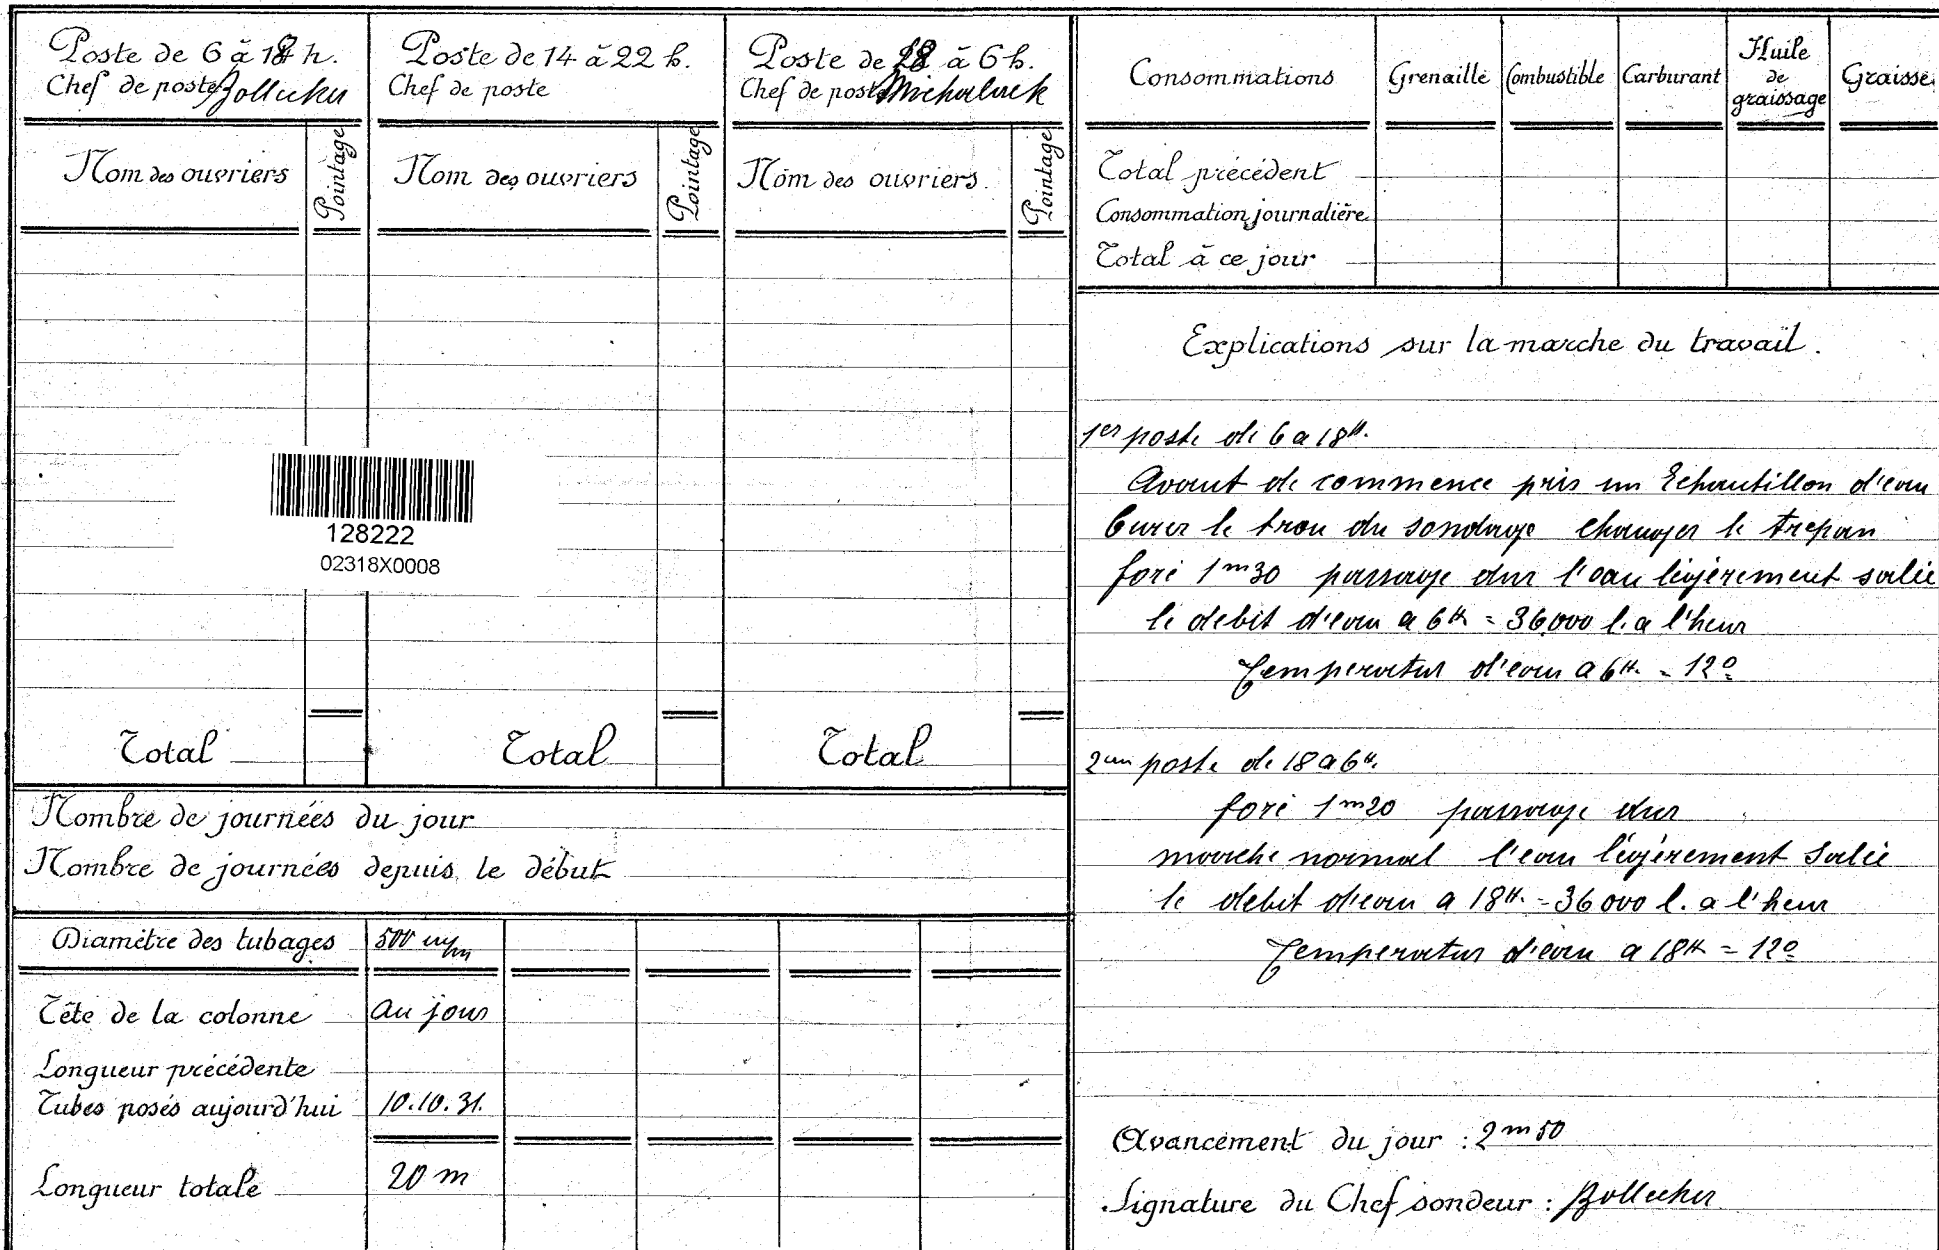 Poste de 6 à 18 h.
Chef de poste Bollecker
Nom des ouvriers
Pointage
Total
Poste de 14 à 22 h.
Chef de poste
Nom des ouvriers
Pointage
Total
Poste de 18 à 6 h.
Chef de poste
Nom des ouvriers
Pointage
Total
128222
02318X0008
Nombre de journées du jour
Nombre de journées depuis le début
Diamètre des tubages 500 m/m
Tête de la colonne au jour
Longueur précédente
Tubes posés aujourd'hui 10.10.31.
Longueur totale 20 m
Consommations Grenaille Combustible Carburant Huile de graissage Graisse
Total précédent
Consommation journalière
Total à ce jour
Explications sur la marche du travail.
1er poste de 6 a 18 H.
Avant de commence pris un Echantillon d'eau
Curer le trou du sondage changer le trepan
foré 1m30 passage dur l'eau légèrement salée
le debit d'eau a 6H = 36,000 l. a l'heur
Temperatur d'eau a 6H. = 12°
2em poste de 18 a 6H.
foré 1m20 passage dur
marche normal l'eau légèrement Salée
le debit d'eau a 18H. = 36 000 l. a l'heur
Temperatur d'eau a 18H = 12°
Avancement du jour : 2m50
Signature du Chef sondeur : Bollecker